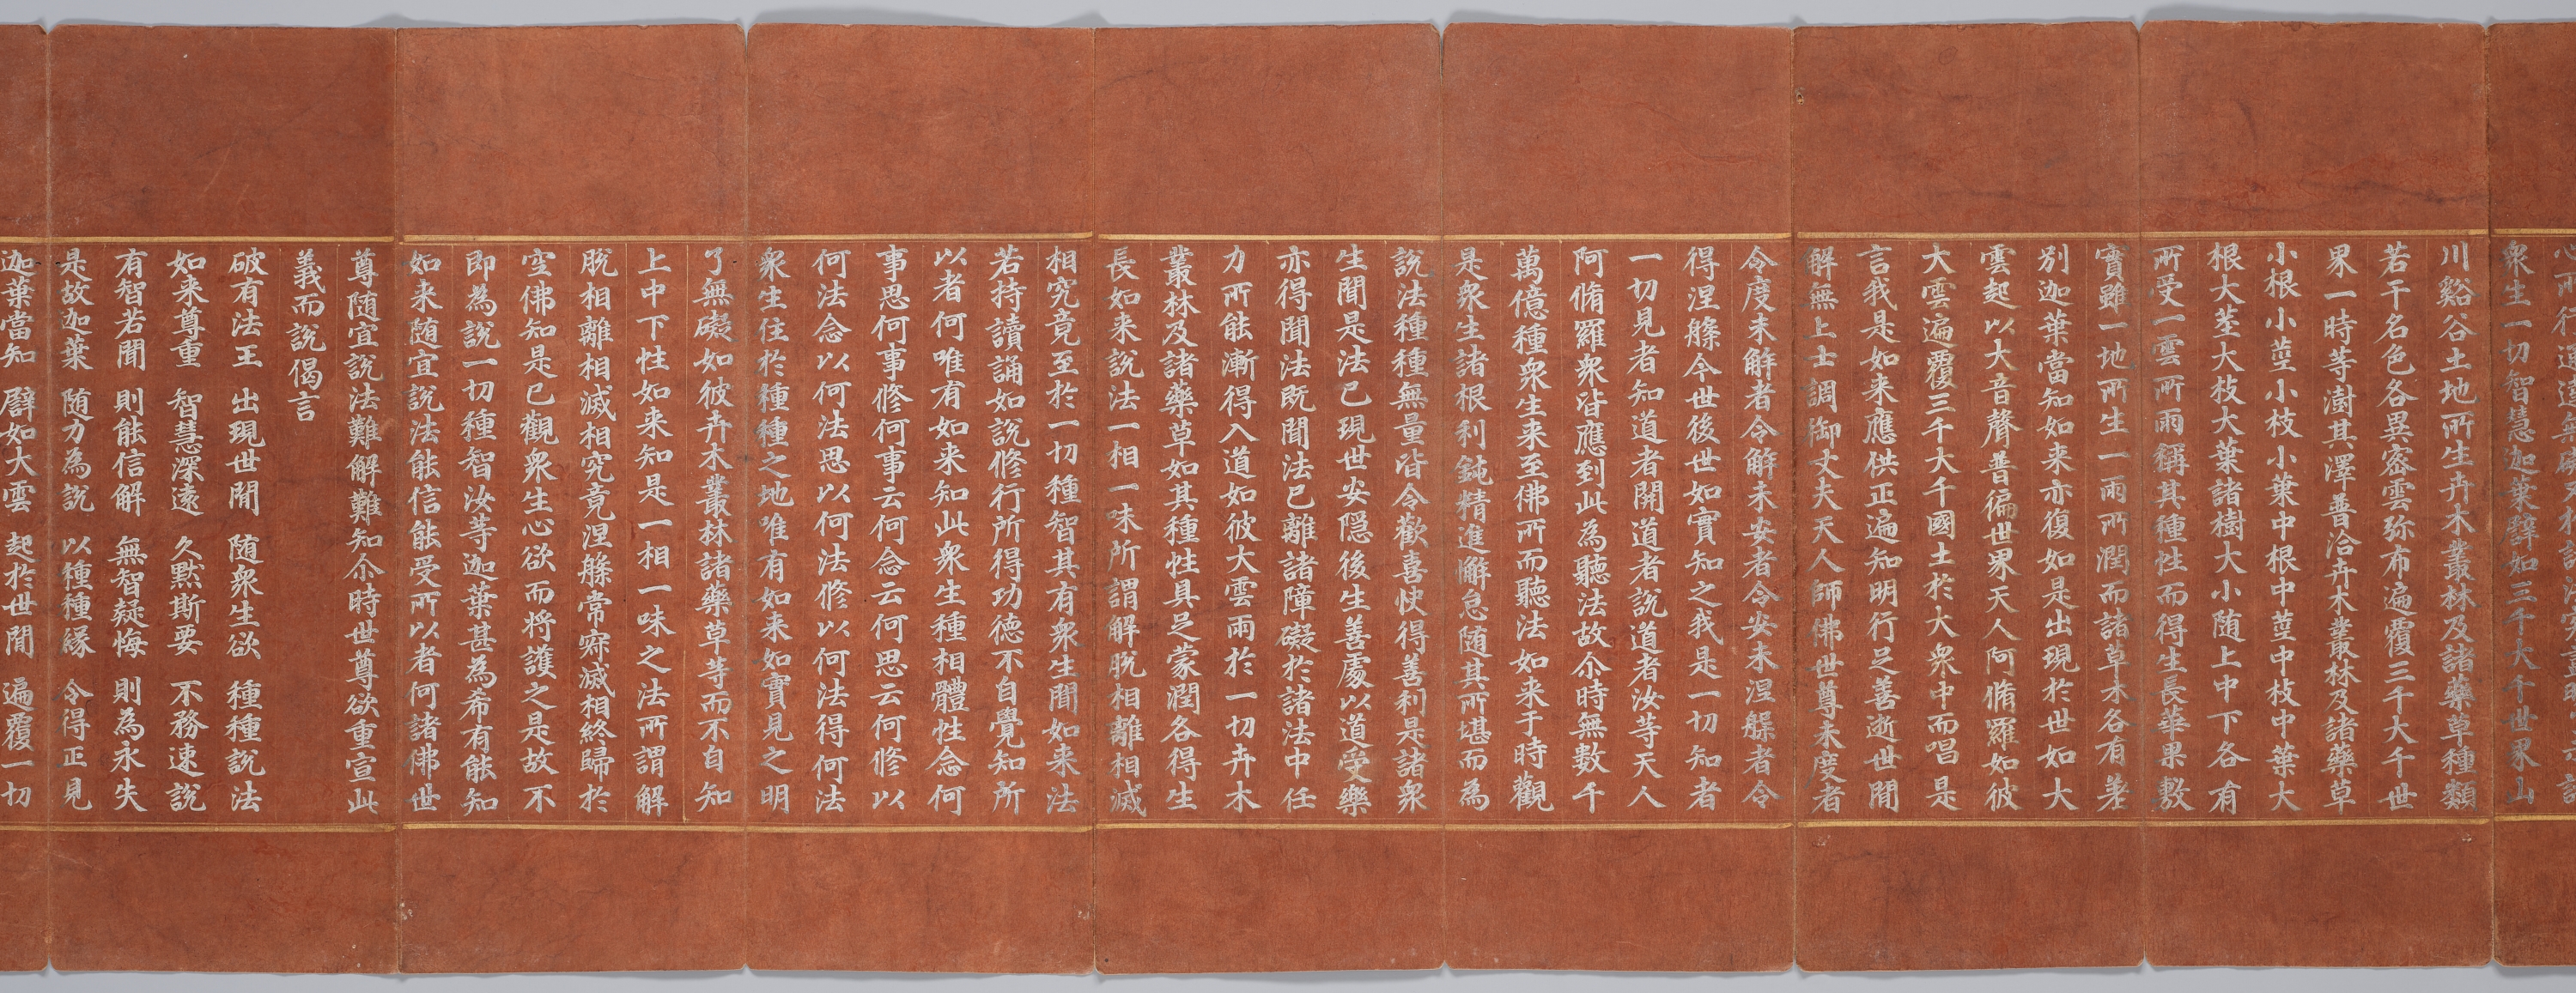 衆生一切智慧迦葉譬如三千大千世界山
川谿谷土地所生卉木叢林及諸藥草種類
若干名色各異密雲弥布遍覆三千大千世
界一時等澍其澤普洽卉木叢林及諸藥草
小根小莖小枝小葉中根中莖中枝中葉大
根大莖大枝大葉諸樹大小随上中下各有
所受一雲所雨稱其種性而得生長華果敷
實雖一地所生一雨所潤而諸草木各有差
別迦葉當知如来亦復如是出現於世如大
雲起以大音聲普徧世界天人阿脩羅如彼
大雲遍覆三千大千國土於大衆中而唱是
言我是如来應供正遍知明行足善逝世間
解無上士調御丈夫天人師佛世尊未度者
令度未解者令解未安者令安未涅槃者令
得涅槃今世後世如實知之我是一切知者
一切見者知道者開道者說道者汝等天人
阿脩羅衆皆應到此為聽法故尒時無數千
萬億種衆生来至佛所而聽法如来于時觀
是衆生諸根利鈍精進懈怠随其所堪而為
說法種種無量皆令歡喜快得善利是諸衆
生聞是法已現世安隱後生善處以道受樂
亦得聞法既聞法已離諸障礙於諸法中任
力所能漸得入道如彼大雲雨於一切卉木
叢林及諸藥草如其種性具足蒙潤各得生
長如来說法一相一味所謂解脫相離相滅
相究竟至於一切種智其有衆生聞如来法
若持讀誦如說修行所得功德不自覺知所
以者何唯有如来知此衆生種相體性念何
事思何事修何事云何念云何思云何修以
何法念以何法思以何法修以何法得何法
衆生住於種種之地唯有如来如實見之明
了無礙如彼卉木叢林諸藥草等而不自知
上中下性如来知是一相一味之法所謂解
脫相離相滅相究竟涅槃常寂滅相終歸於
空佛知是已觀衆生心欲而将護之是故不
即為說一切種智汝等迦葉甚為希有能知
如来随宜說法能信能受所以者何諸佛世
尊随宜說法難解難知尒時世尊欲重宣此
義而說偈言
破有法王 出現世間 随衆生欲 種種說法
如来尊重 智慧深遠 久黙斯要 不務速說
有智若聞 則能信解 無智疑悔 則為永失
是故迦葉 随力為說 以種種緣 令得正見
迦葉當知 譬如大雲 起於世間 遍覆一切